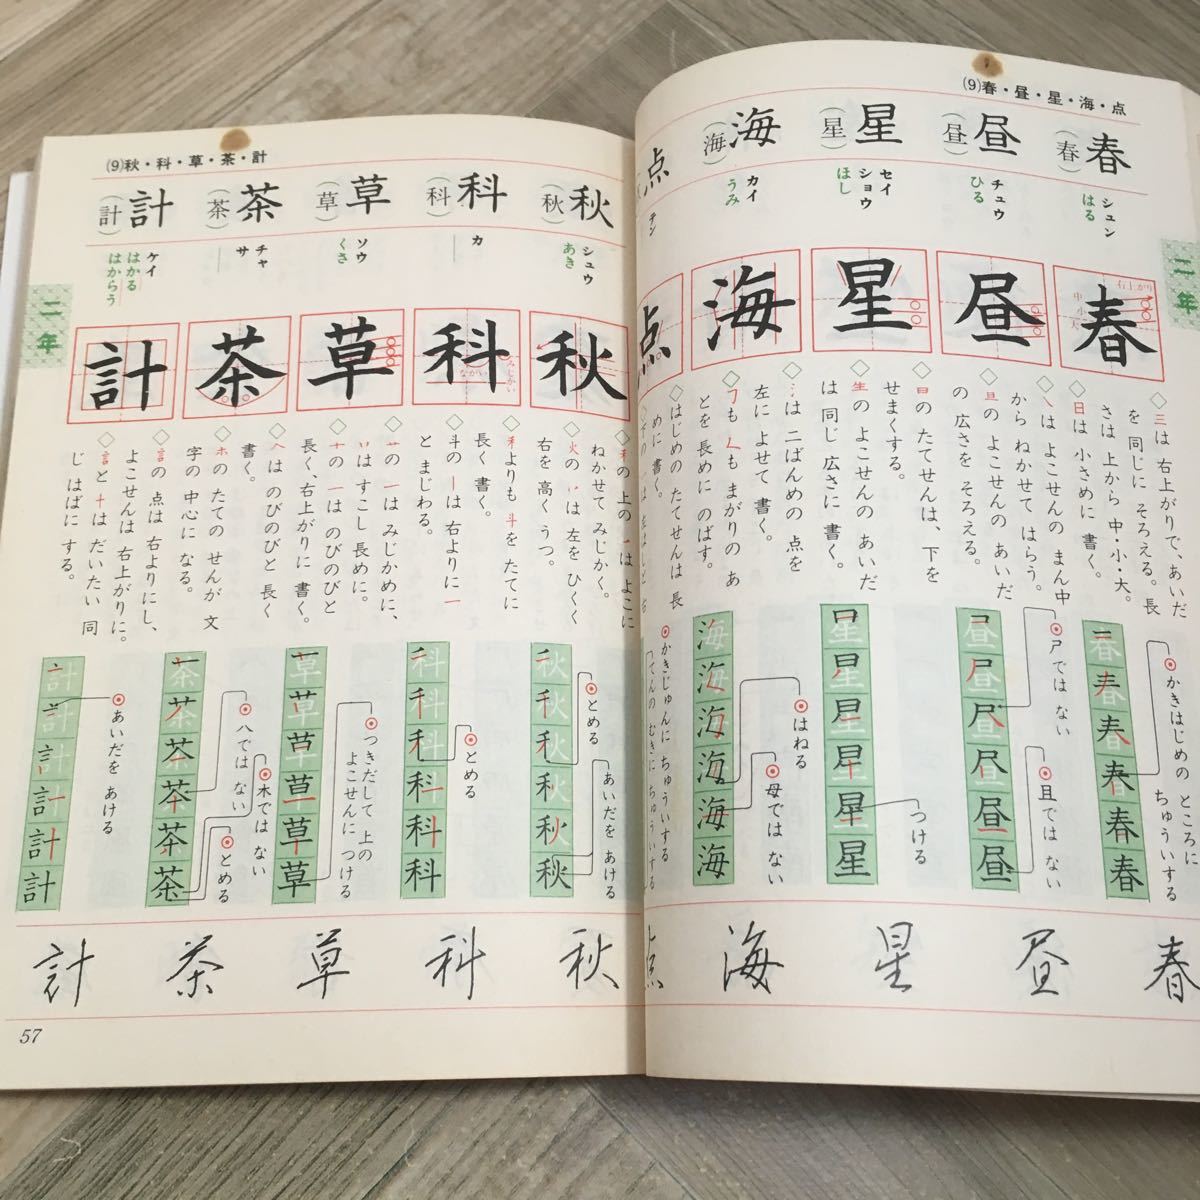 (9)春・昼・星・海・点
二年
春
(春)
シュン
はる
右上がり
中
小
大
春
◇三は 右上がりで、あいだ
を 同じに そろえる。長
さは 上から 中・小・大。
◇日は 小さめに 書く。
かきはじめの ところに
ちゅういする
春春春春春
春
昼
(昼)
チュウ
ひる
昼
◇㇏は よこせんの まん中
から ねかせて はらう。
◇旦の よこせんの あいだ
の 広さを そろえる。
尸では ない
且では ない
昼
星
(星)
セイ
ショウ
ほし
星
◇日の たてせんは、下を
せまくする。
◇生の よこせんの あいだ
は 同じ 広さに 書く。
つける
星
海
(海)
カイ
うみ
海
◇氵は 二ばんめの 点を
左に よせて 書く。
も まがりの あ
とを 長めに のばす。
はねる
母では ない
海
点
テン
点
◇はじめの たてせんは 長
めに 書く。
かきじゅんに ちゅういする
てんの むきに ちゅういする
点
(9)秋・科・草・茶・計
二年
秋
(秋)
シュウ
あき
秋
◇禾の 上の 一は よこに
ねかせて みじかく。
◇火の ハは 左を ひくく
右を 高く うつ。
とめる
あいだを あける
秋
科
(科)
カ
みじかい
ながい
科
◇禾よりも 斗を たてに
長く 書く。
◇斗の 丨は 右よりに 一
と まじわる。
とめる
科
草
(草)
ソウ
くさ
草
◇艹の 一は みじかめに、
はすこし 長めに。
◇十の 一は のびのびと
長く、右上がりに 書く。
つきだして 上の
よこせんに つける
草
茶
(茶)
チャ
サ
茶
◇𠆢は のびのびと 長く
書く。
◇ホの たての せんが 文
字の 中心に なる。
八では ない
木では ない
とめる
茶
計
(計)
ケイ
はかる
はからう
計
◇言の 点は 右よりにし、
よこせんは 右上がりに。
◇言と 十は だいたい 同
じ はばに する。
あいだを あける
計
57